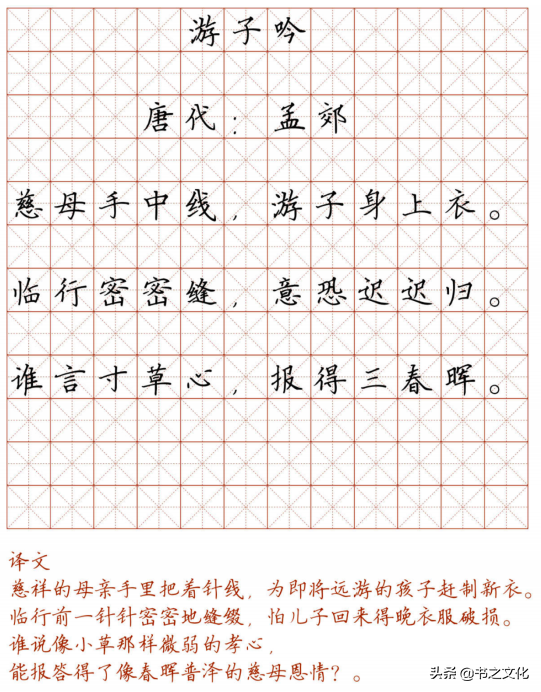 游子吟
唐代：孟郊
慈母手中线，游子身上衣。
临行密密缝，意恐迟迟归。
谁言寸草心，报得三春晖。
译文
慈祥的母亲手里把着针线，为即将远游的孩子赶制新衣。
临行前一针针密密地缝缀，怕儿子回来得晚衣服破损。
谁说像小草那样微弱的孝心，
能报答得了像春晖普泽的慈母恩情？。
头条 @书之文化